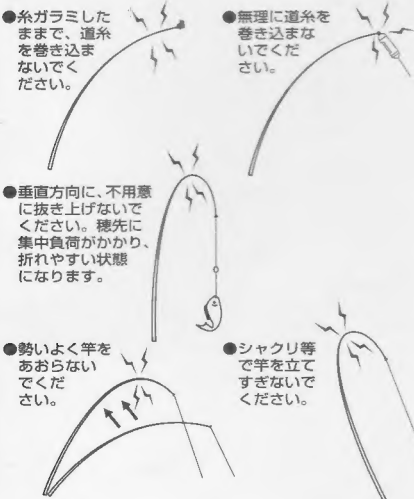 ●糸ガラミした
ままで、道糸
を巻き込ま
ないでく
ださい。
●無理に道糸を
巻き込まな
いでくだ
さい。
●垂直方向に、不用意
に抜き上げないで
ください。穂先に
集中負荷がかかり、
折れやすい状態
になります。
●勢いよく竿を
あおらない
でくだ
さい。
●シャクリ等
で竿を立て
すぎないで
ください。